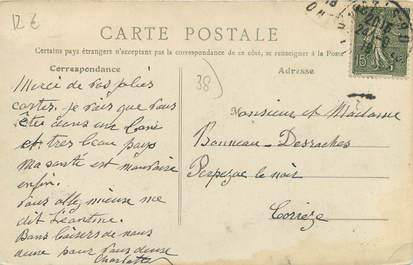 12 €
CARTE POSTALE
Certains pays étrangers n'acceptant pas la correspondance de ce côté, se renseigner à la Poste
Correspondance
Adresse
38
Merci de vos jolies
cartes, je vois que vous
êtes dans une
et tres beau pays
Ma santé est mauvaise
enfin.
vous allez mieux me
dit Léontine.
Bons baisers de nous
deux pour vous deux
Charlotte
Monsieur et Madame
Bonneau-Desroches
Perpezac le noir
Corrèze
15